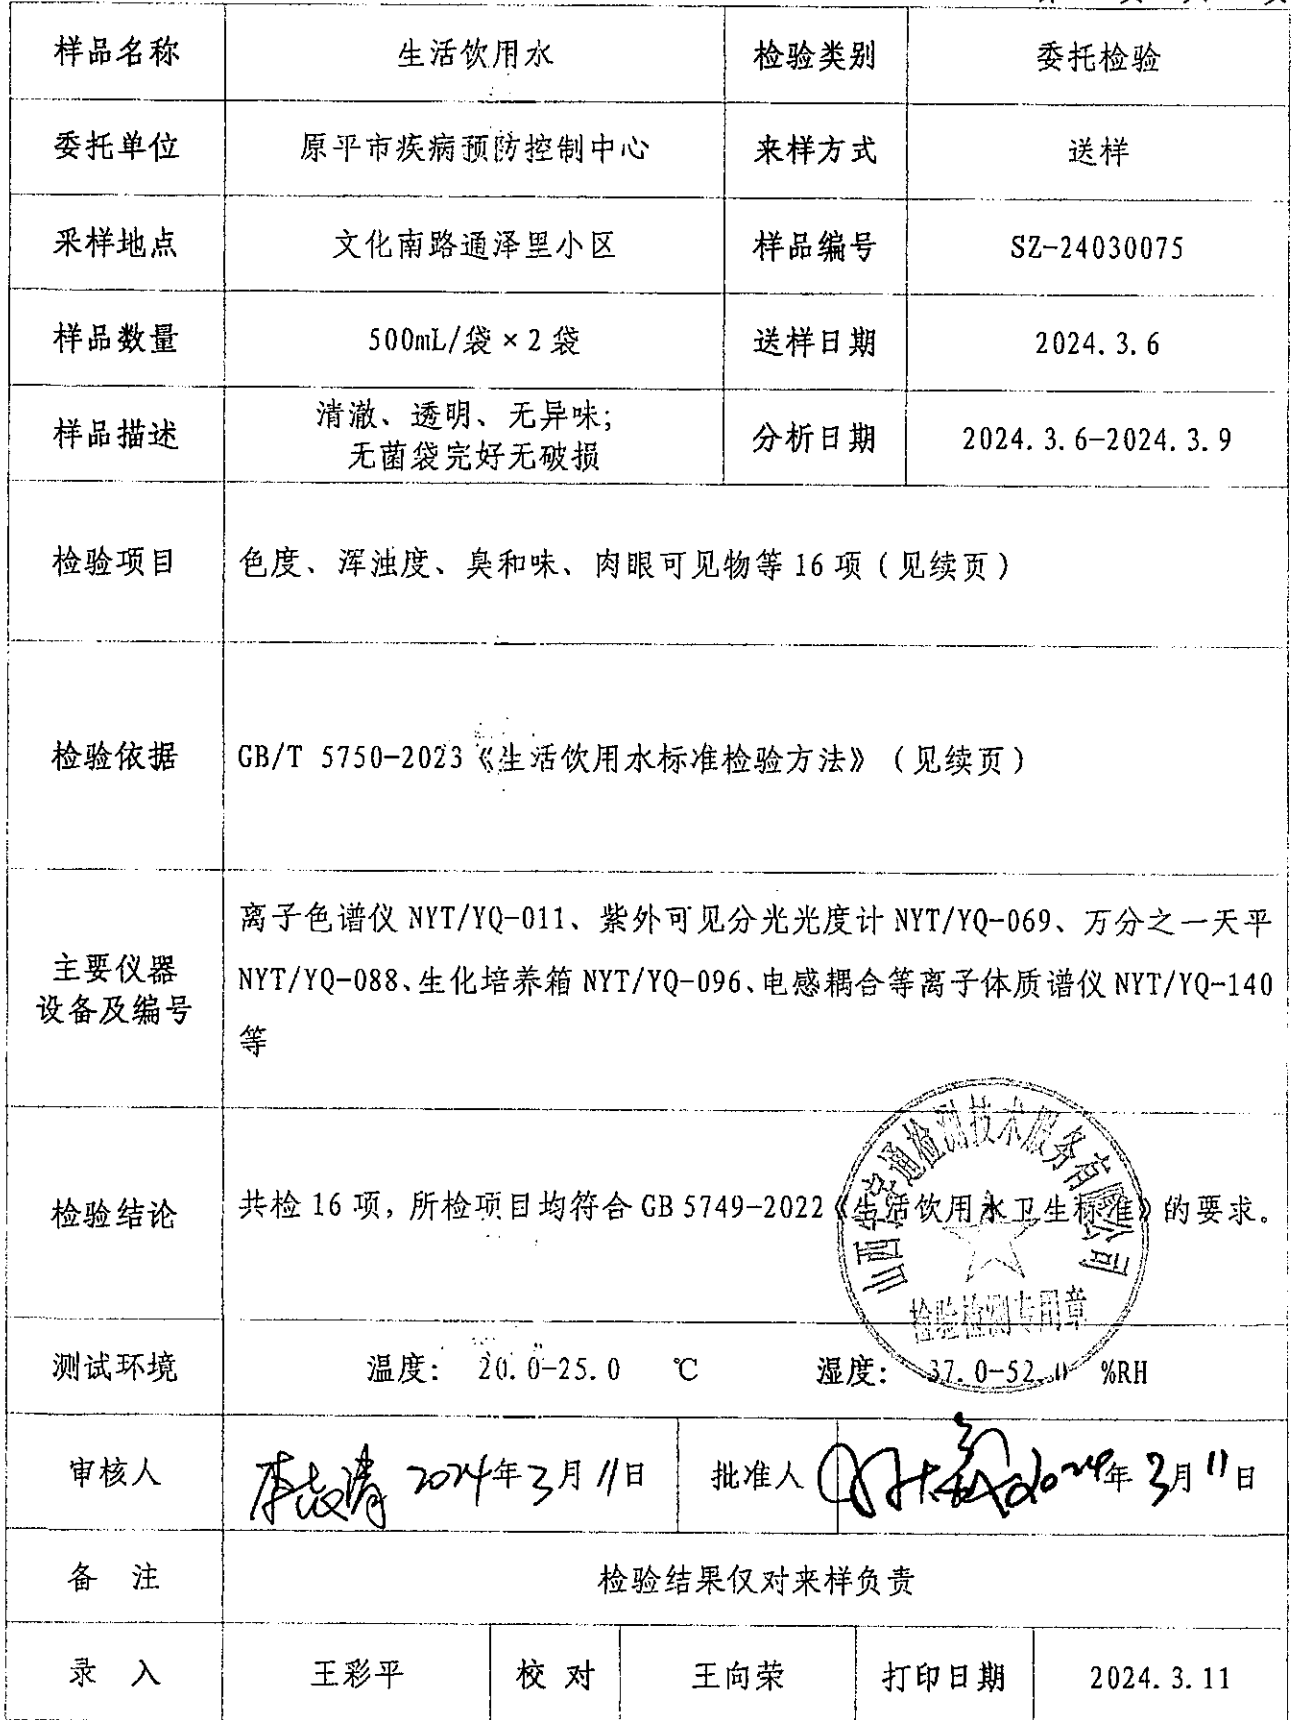 样品名称 生活饮用水 检验类别 委托检验
委托单位 原平市疾病预防控制中心 来样方式 送样
采样地点 文化南路通泽里小区 样品编号 SZ-24030075
样品数量 500mL/袋×2袋 送样日期 2024.3.6
样品描述 清澈、透明、无异味;
无菌袋完好无破损 分析日期 2024.3.6-2024.3.9
检验项目 色度、浑浊度、臭和味、肉眼可见物等16项(见续页)
检验依据 GB/T 5750-2023《生活饮用水标准检验方法》(见续页)
主要仪器
设备及编号
离子色谱仪NYT/YQ-011、紫外可见分光光度计NYT/YQ-069、万分之一天平
NYT/YQ-088、生化培养箱NYT/YQ-096、电感耦合等离子体质谱仪NYT/YQ-140
等
检验结论 共检16项,所检项目均符合GB 5749-2022《生活饮用水卫生标准》的要求。
检测技术服务有限公司
检验检测专用章
测试环境 温度: 20.0-25.0 ℃ 湿度: 37.0-52.0 %RH
审核人 2024年3月11日 批准人 2024年3月11日
备 注 检验结果仅对来样负责
录 入 王彩平 校 对 王向荣 打印日期 2024.3.11